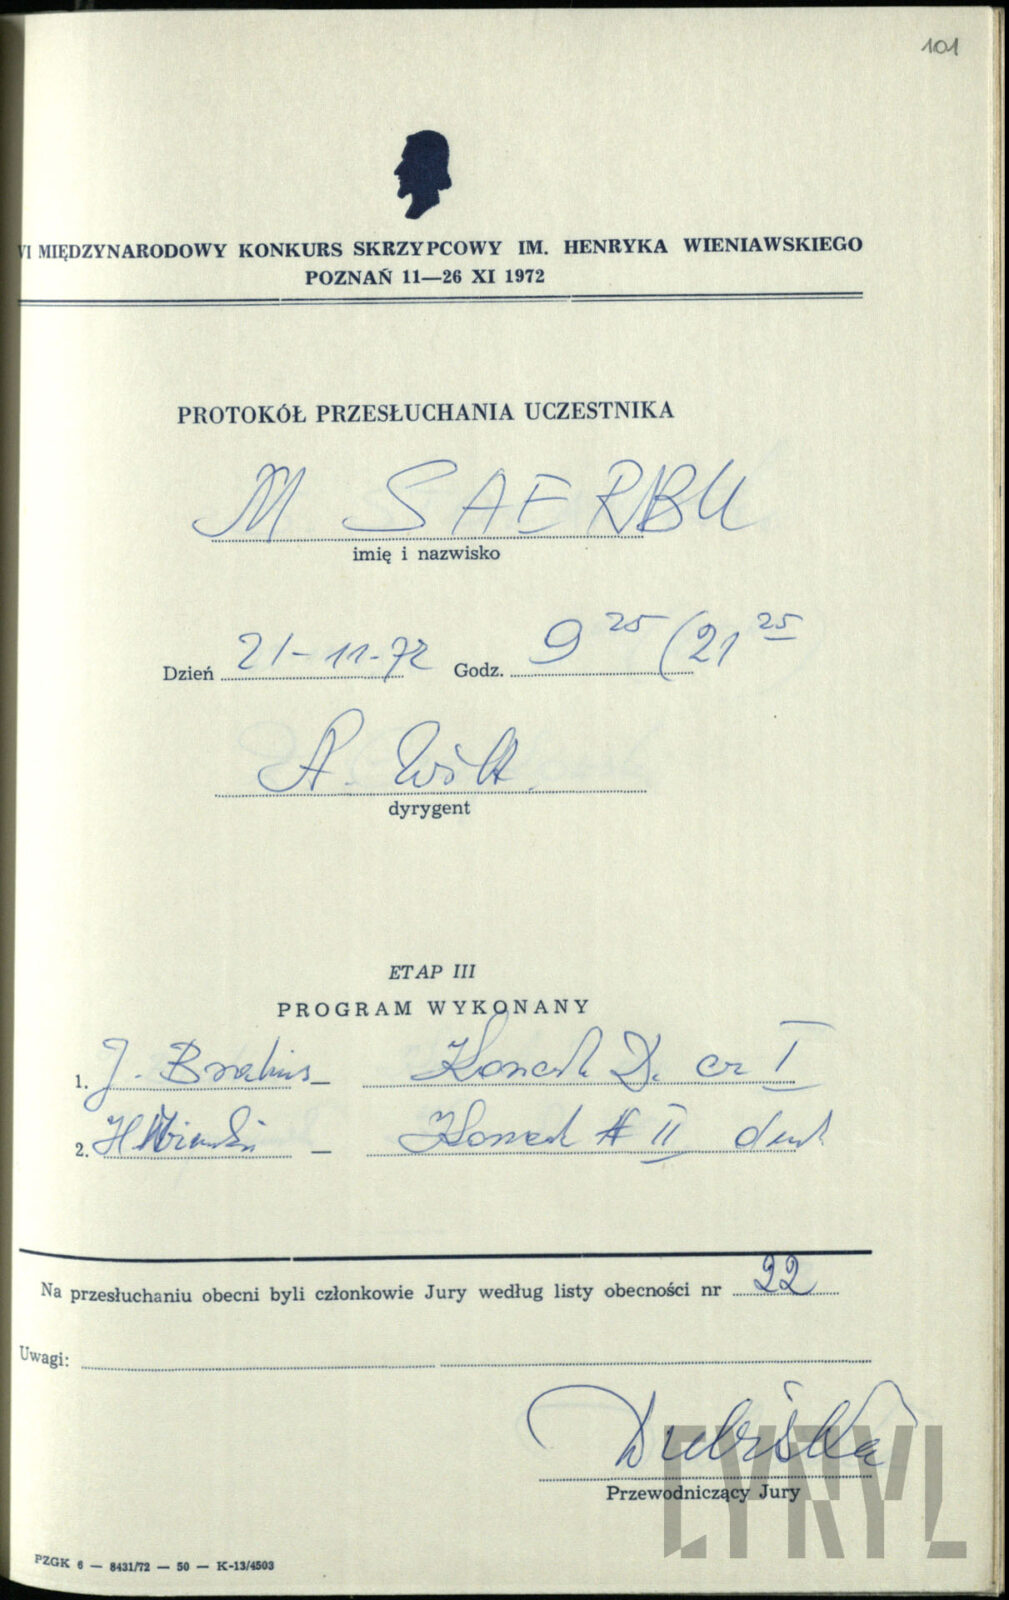 101
VI MIĘDZYNARODOWY KONKURS SKRZYPCOWY IM. HENRYKA WIENIAWSKIEGO
POZNAŃ 11—26 XI 1972
PROTOKÓŁ PRZESŁUCHANIA UCZESTNIKA
M SAERBU
imię i nazwisko
Dzień 21-11-72 Godz. 9 25 (21 25
A. Wit
dyrygent
ETAP III
PROGRAM WYKONANY
1. J. Brahms – Koncert D. I
2. – Koncert II
Na przesłuchaniu obecni byli członkowie Jury według listy obecności nr 22
Uwagi:
Dubiska
Przewodniczący Jury
CYRYL
PZGK 6 — 8431/72 — 50 — K-13/4503